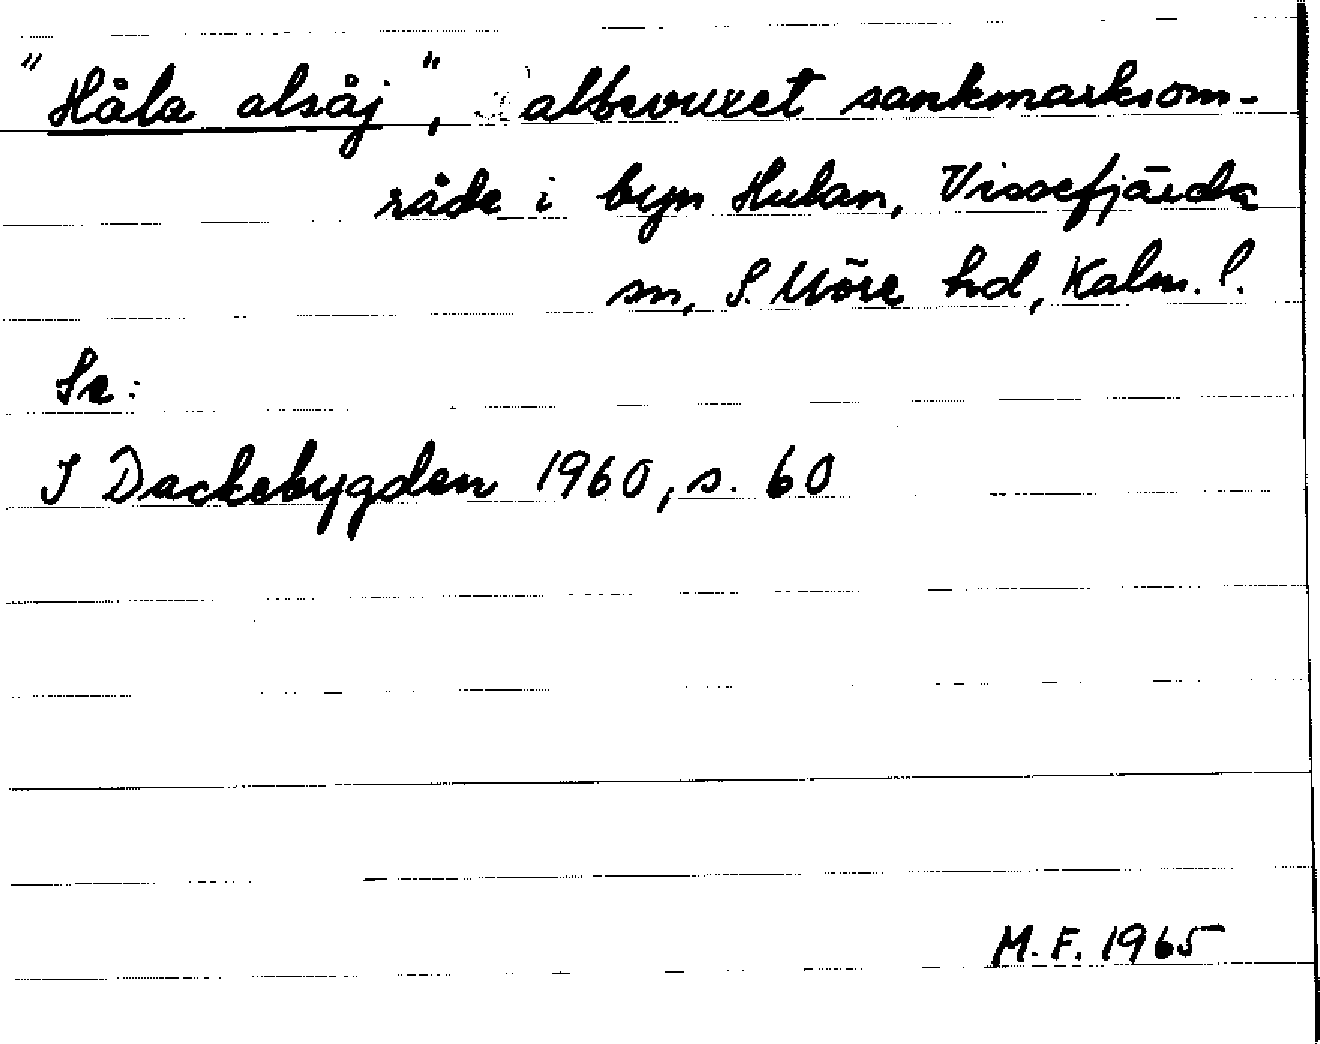 "Håla alsåj", albevuxet sankmarksom-
råde i byn Hulan, Vissefjärda
sn, S. Möre hd, Kalm. l.
Se:
I Dackebygden 1960, s. 60
M.F. 1965